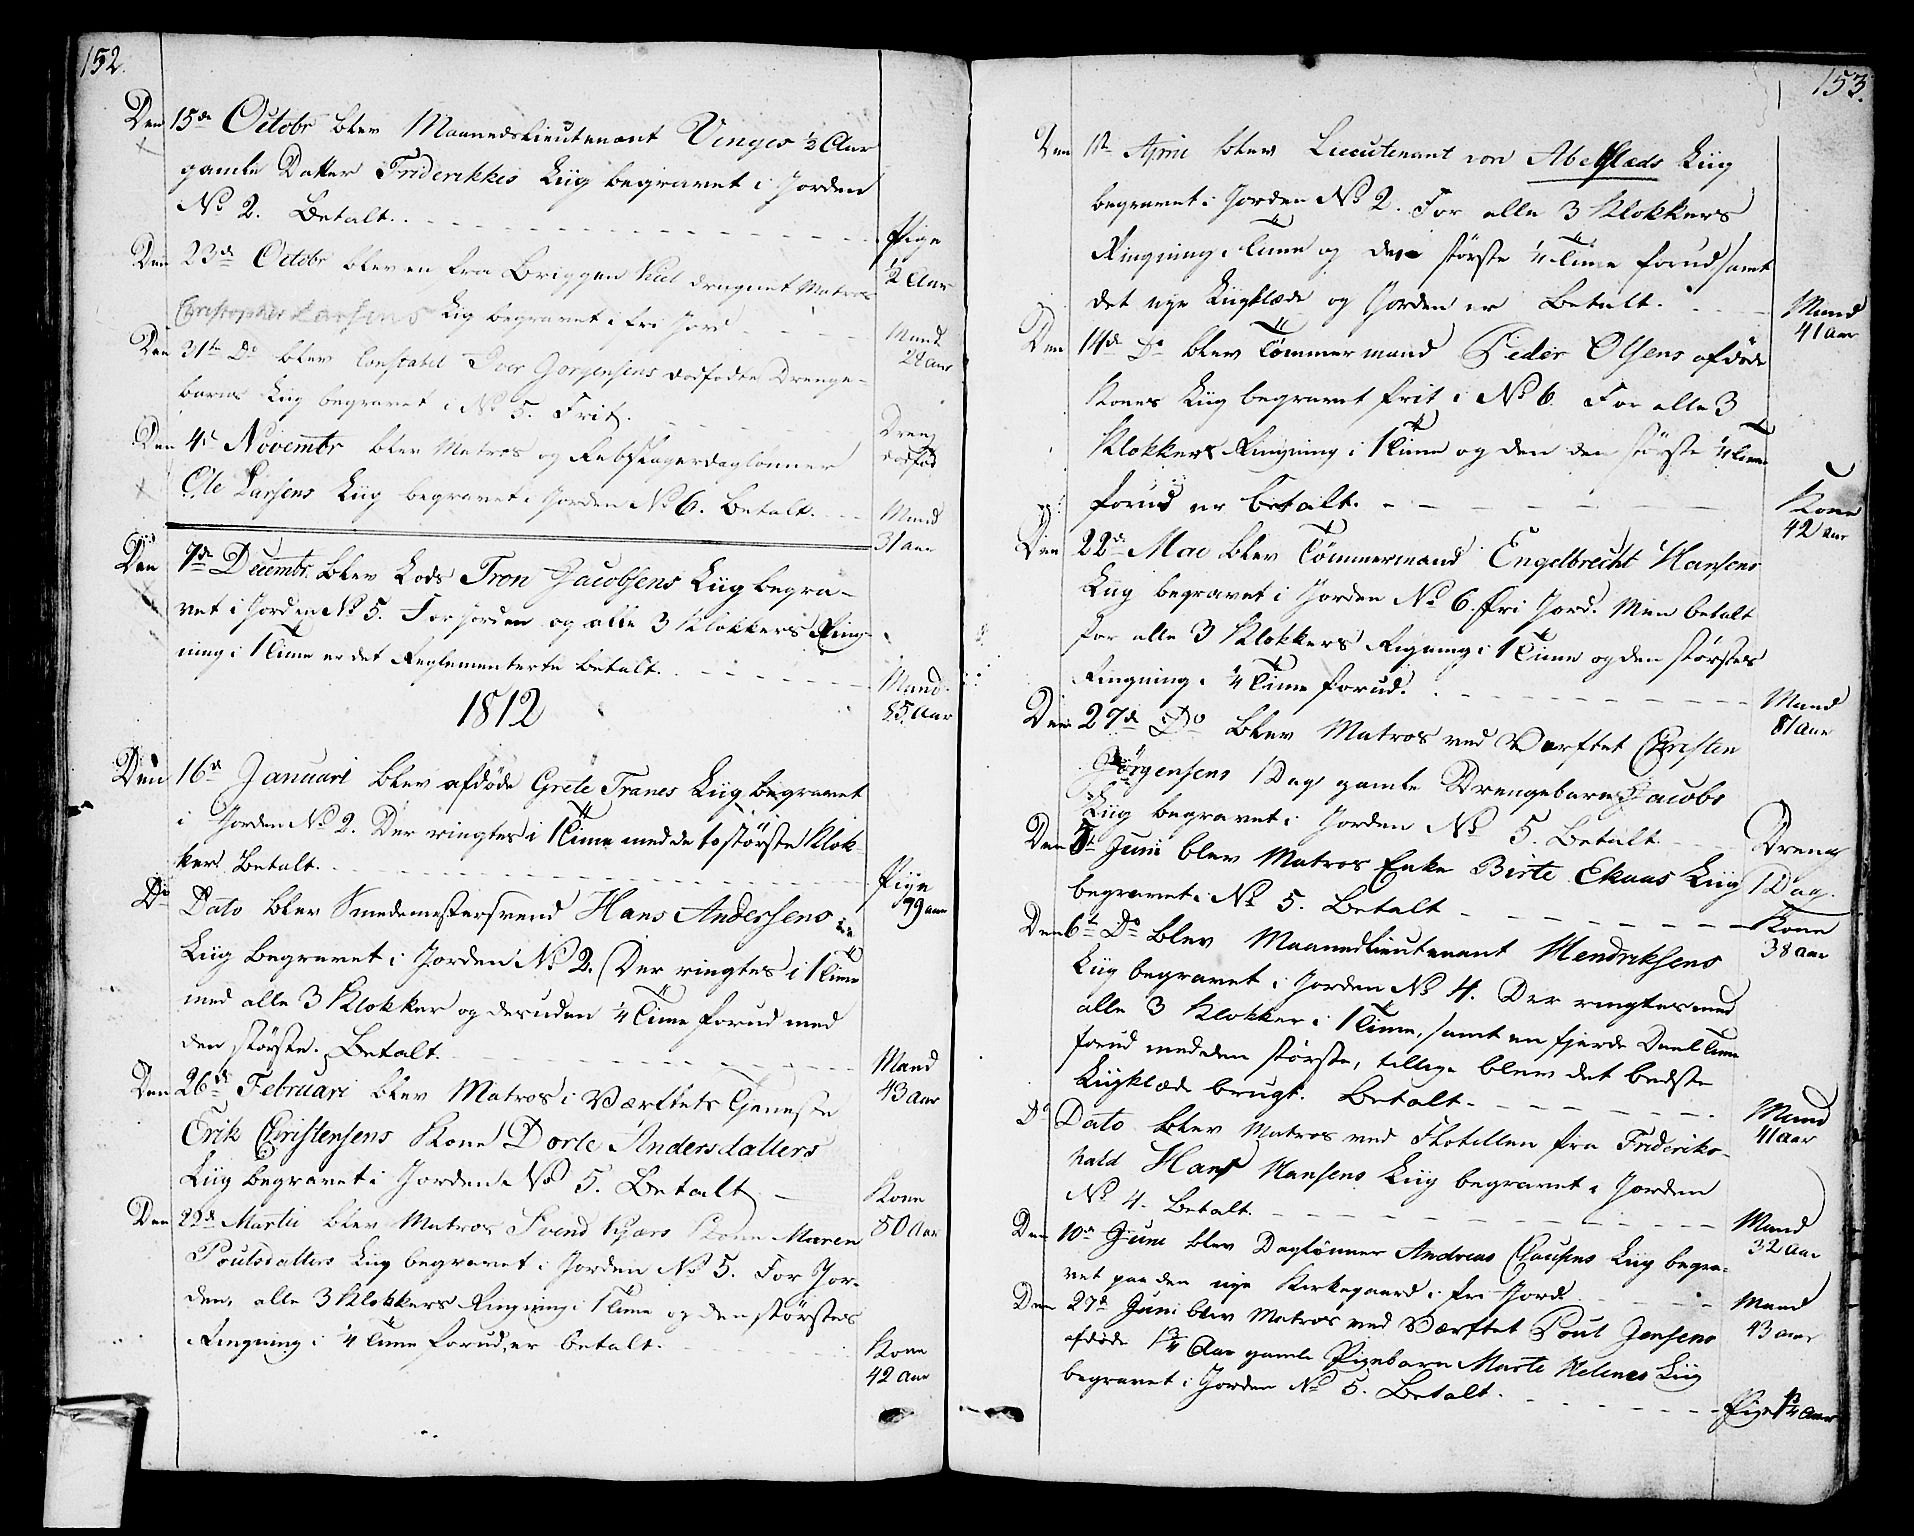 152.
Den 15de Octobr blev Maanedslieutenant Vinges ½ Aar
gamle Datter Friderikkes Liig begravet i Jorden
No 2. Betalt.
Pige
½ Aar
Den 23de Octobr blev en fra Briggen Kiel druknet Matros
Christopher Larsens Liig begravet i fri Jord
Mand
24 aar
Den 31te Do blev Constabel Joer Jørgensens dødfødte Drenge-
barns Liig begravet i No 5. Frit.
Dreng
dødfød
Den 4de Novembr blev Matros og Rebslagerdaglønner
Ole Larsens Liig begravet i Jorden No 6. Betalt.
Mand
31 aar
Den 7de Decembr. blev Lods Tron Jacobsens Liig begra-
vet i Jorden No 5. For Jorden og alle 3 Klokkers Ring-
ning i 1 Time er det Reglementerte betalt.
Mand
85 Aar
1812
Den 16de Januari blev afdøde Grete Tranes Liig begravet
i Jorden No 2. Der ringtes i 1 Time med de to største Klok-
ker. Betalt.
Pige
99 aar
Do Dato blev Smedemestersvend Hans Andersens
Liig begravet i Jorden No 2. Der ringtes i 1 Time
med alle 3 Klokker og desuden ¼ Time forud med
den største. Betalt.
Mand
43 aar
Den 26de Februari blev Matros i Værftets Tjeneste
Erik Christensens Kone Dorte Andersdatters
Liig begravet i Jorden No 5. Betalt
Kone
50 Aar
Den 22de Martii blev Matros Svend Kjærs Kone Maren
Poulsdatters Liig begravet i Jorden No 5. For Jor-
den, alle 3 Klokkers Ringning i 1 Time og den størstes
Ringning i ¼ Time forud, er betalt.
Kone
42 aar
153.
Den 1te April blev Lieutenant von Abelsteds Liig
begravet i Jorden No 2. For alle 3 Klokkers
Ringning i Time og den største ¼ Time forud samt
det nye Liigklæde og Jorden er Betalt.
Mand
41 aar
Den 14de Do blev Tømmermand Peder Olsens afdøde
Kones Liig begravet frit i No 6. For alle 3
Klokkers Ringning i 1 Time og den den største ¼ Time
forud er betalt.
Kone
42 aar
Den 22de Mai blev Tømmermand Engelbrecht Hansens
Liig begravet i Jorden No 6. fri Jord. Men betalt
for alle 3 Klokkers Rigning i 1 Time og den størstes
Ringning i ¼ Time forud.
Mand
81 aar
Den 27de Do blev Matros ved Værftet Christen
Jørgensens 1 Dag gamle Drengebarn Jacobs
Liig begravet i Jorden No 5. Betalt.
Dreng
1 Dag.
Den 5te Juni blev Matros Enke Birte Ekaas Liig
begravet i No 5. Betalt
Kone
38 aar
Den 6te Do blev Maanedlieutenant Hendriksens
Liig begravet i Jorden No 4. Der ringtes med
alle 3 Klokker i 1 Time, samt en fjerde Deel Time
forud med den største, tillige blev det bedste
Liigklæde brugt. Betalt.
Mand
41 aar
Do Dato blev Matros ved Flotillen fra Frideriks-
hald Hans Hansens Liig begravet i Jorden
No 4. Betalt.
Mand
32 aar
Den 10de Juni blev Daglønner Andreas Clausens Liig begra-
vet paa den nye Kirkegaard i fri Jord.
Mand
43 aar
Den 27de Juni blev Matros ved Værftet Poul Jensens
afdøde 1¼ Aar gamle Pigebarn Marte Helenes Liig
begravet i Jorden No 5. Betalt.
Pige 1¼ Aar